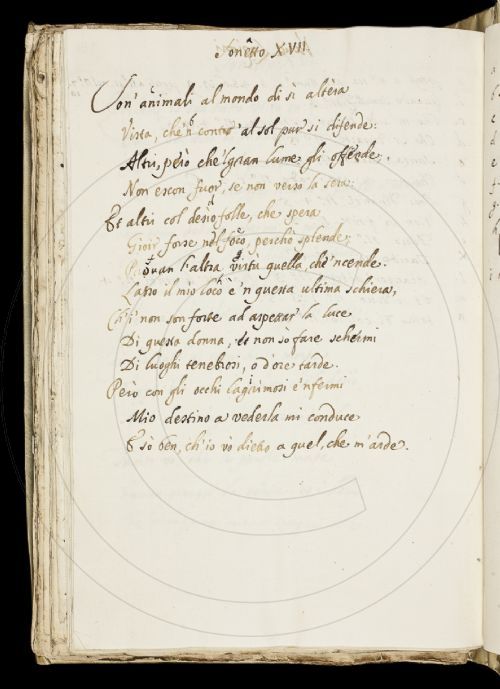 Sonetto XVII.
Son' animali al mondo di sì altera
Vista, che'n contro' al sol pur si difende:
Altri, però che'l gran lume gli offende,
Non escon fuor, se non verso la sera:
Et altri col desio folle, che spera
Gioir forse nel foco, perchè splende;
Provan l'altra virtù quella, che'ncende.
Lasso il mio loco è 'n questa ultima schiera,
Ch'i' non son forte ad aspettar la luce
Di questa donna, et non sò fare schermi
Di luoghi tenebrosi, o d'ore tarde.
Però con gli occhi lagrimosi e'nfermi
Mio destino a vederla mi conduce
E sò ben, ch'io vò dietro a quel, che m'arde.